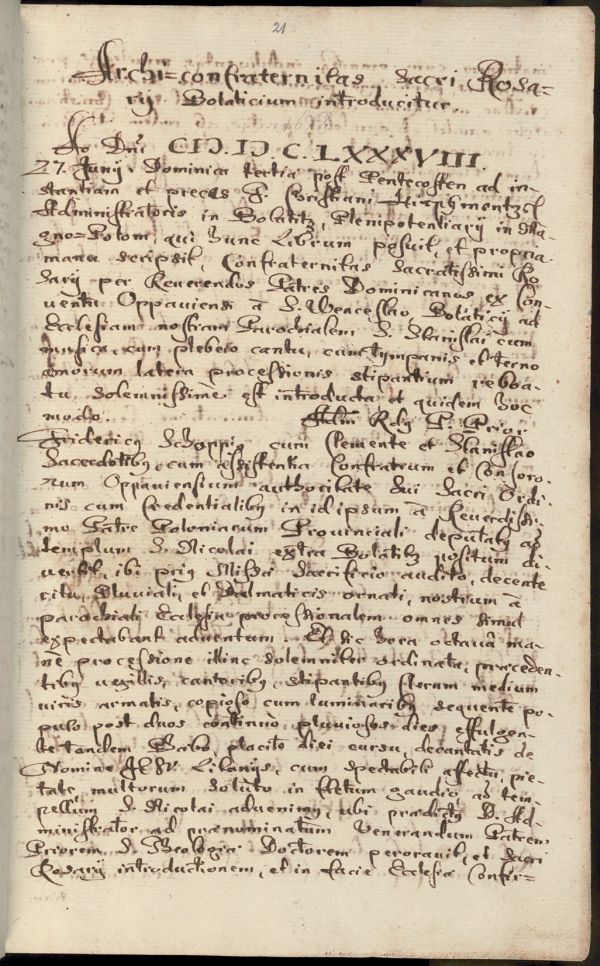 21
Archi=confraternitas Sacri Rosa=
rij Bolaticium introducitur.
Ao Dni CIƆ.IƆ C.LXXXVIII.
27. Junij Dominica tertia post Pentecosten ad in-
stantiam et preces F. Christiani
Administratoris in Bolatitz, Plenipotentiarij in Ma-
gno=Polom, qui hunc Librum posuit, et propria
manu scripsit, Confraternitas Sacratissimi Ro
sarij per Reverendos Patres Dominicanos ex Con-
ventu Oppaviensi à D. Wenceslao Bolaticij ad
Ecclesiam nostram Parochialem D. Stanislai cum
musica, cum plebeio cantu, cum tympanis et terno
latera processionis stipantium reboa-
tu solemnissimè est introducta et quidem hoc
modo. Adm Rdg P. Prior
Fridericg cum Clemente et Stanislao
Sacerdotibg, cum assistentia Confratrum et Consoro-
rum Oppaviensium authoritate sui Sacri Ordi-
nis cum credentialibg in id ipsum à Reverdissi-
mo Patre Poloniarum Provinciali deputatg ad
templum D. Nicolai extra Bolatitz positum di-
vertit, ibi prig Missæ Sacrificio audito, decente
ritu, Pluviali, et Dalmaticis ornati, nostrum à
parochiali Ecclesia processionalem omnes simul
expectabant adventum. Et sic hora octava ma-
ne processione illinc solemniter ordinata, præceden-
tibg vexillis, cantoribg, stipantibg medium
viris armatis, copioso cum luminaribg sequente po-
pulo post duos continuò pluviosos dies, effulgen-
te tandem Phæbo, placito diei cursu, decantatis de
Nomine JESU Litanijs, cum spectabili affectu, pie-
tate, multorum soluto in fletum gaudio ad tem-
pellum D. Nicolai advenimg, ubi prædictg D. Ad-
ministrator ad prænominatum Venerandum Patrem
Priorem S. Theologiæ Doctorem peroravit, et Sacri
Rosarij introductionem, et in facie Ecclesiæ Confir=